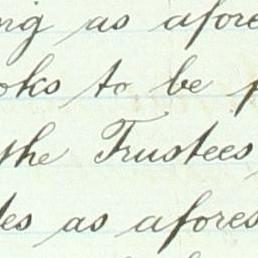 ng as afore
oks to be p
the Trustees
tes as afores